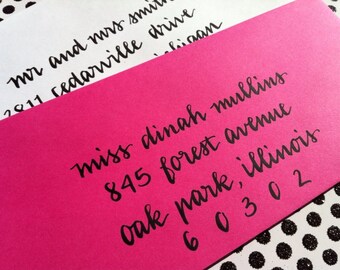 mr and mrs smith
2811 cedarville drive
michigan
miss dinah mullins
845 forest avenue
oak park, illinois
60302